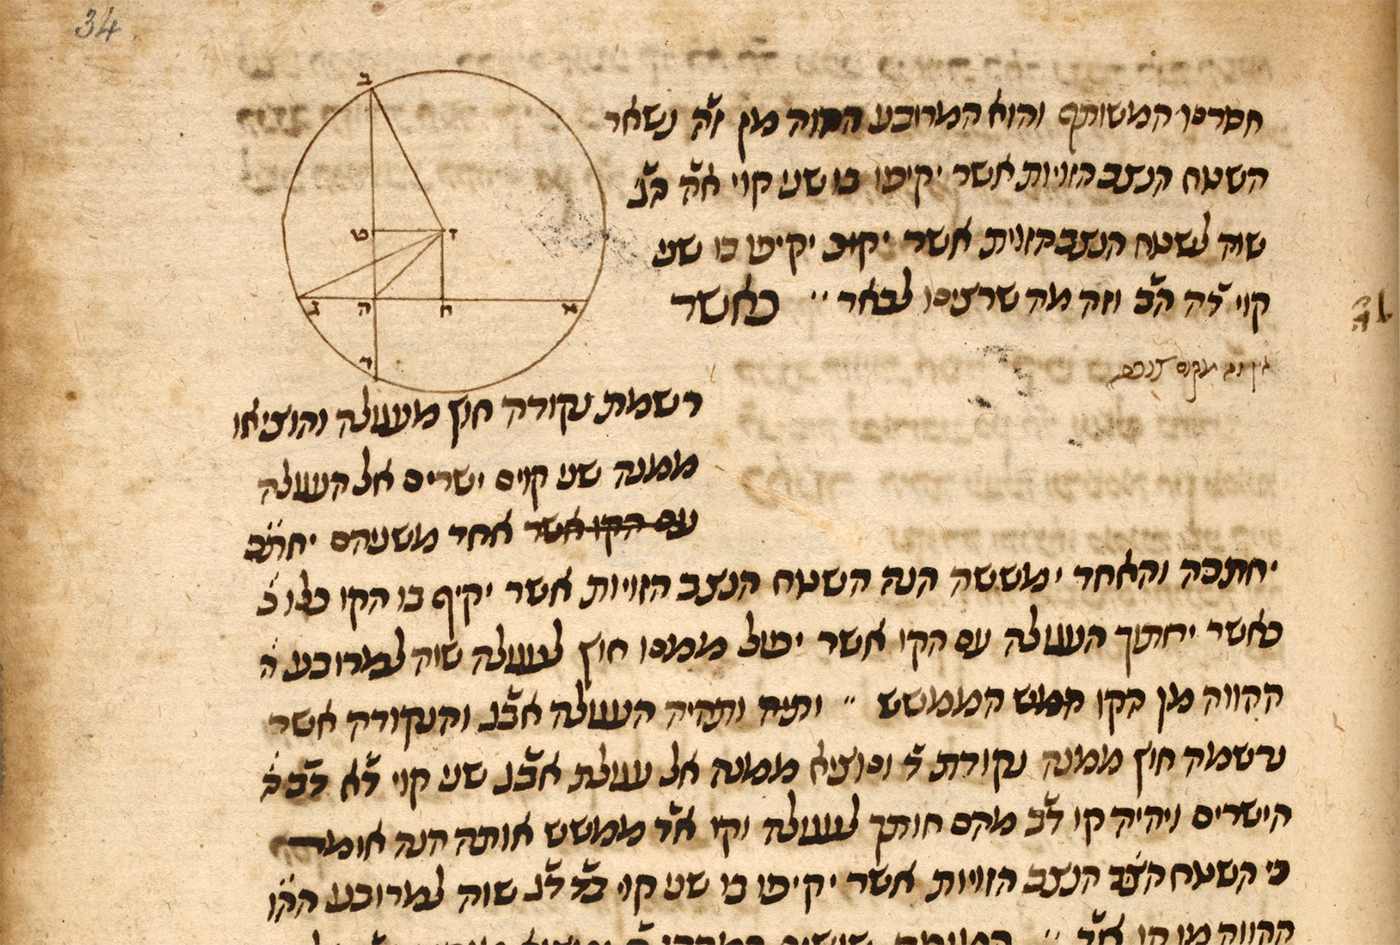 34
חסרנו המשותף והוא המרובע ההוה מן זה נשאר
השטח הנצב הזויות אשר יקיפו בו שני קוי אה בג
שוה לשטח הנצב הזוית אשר יקיפו בו שני
קוי דה הב וזה מה שרצינו לבאר כאשר
ב
ט ז
ג ה ח א
ד
לה
רשמת נקודה חוץ מעגולה והוציאו
ממנה שני קוים ישרים אל העגולה
עם הקו אשר אחד משניהם יחתכ
יחתכה והאחד ימששה הנה השטח הנצב הזויות אשר יקיף בו הקו כלו
כאשר יחתוך העגולה עם הקו אשר יפול ממנו חוץ לעגולה שוה למרובע ה
ההווה מן הקו הממשש ותהיה העגולה אבג והנקודה אשר
נרשמה חוץ ממנה נקודת ד ונוציא ממנה אל עגולת אבג שני קוי דא דבג
הישרים ויהיה קו דב מהם חותך לעגולה וקו אד ממשש אותה הנה אומר
כי השטח הנצב הזויות אשר יקיפו בו שני קוי בד דג שוה למרובע ההו
ההווה מן קו אד